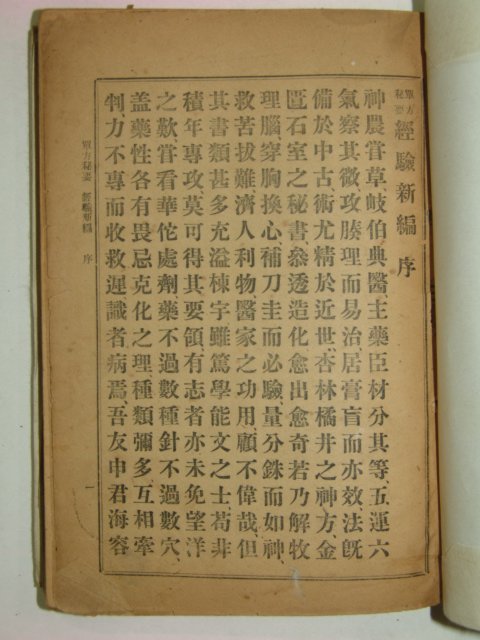 單方秘要 經驗新編 序
神農嘗草、岐伯典醫、主藥臣材分其等、五運六
氣察其微、攻腠理而易治、居膏肓而亦效、法旣
備於中古、術尤精於近世、杏林橘井之神方、金
匱石室之秘書、叅透造化、愈出愈奇、若乃解牧
理腦穿胸換心、補刀圭而必驗、量分銖而如神、
救苦拔難、濟人利物、醫家之功用、顧不偉哉、但
其書類甚多、充溢棟宇、雖篤學能文之士、苟非
積年專攻、莫可得其要領、有志者亦未免望洋
之歎、甞看華佗處劑藥不過數種、針不過數穴、
盖藥性各有畏忌克化之理、種類彌多、互相牽
判、力不專而收救遲、識者病焉、吾友申君海容
單方秘要 經驗新編 序 一